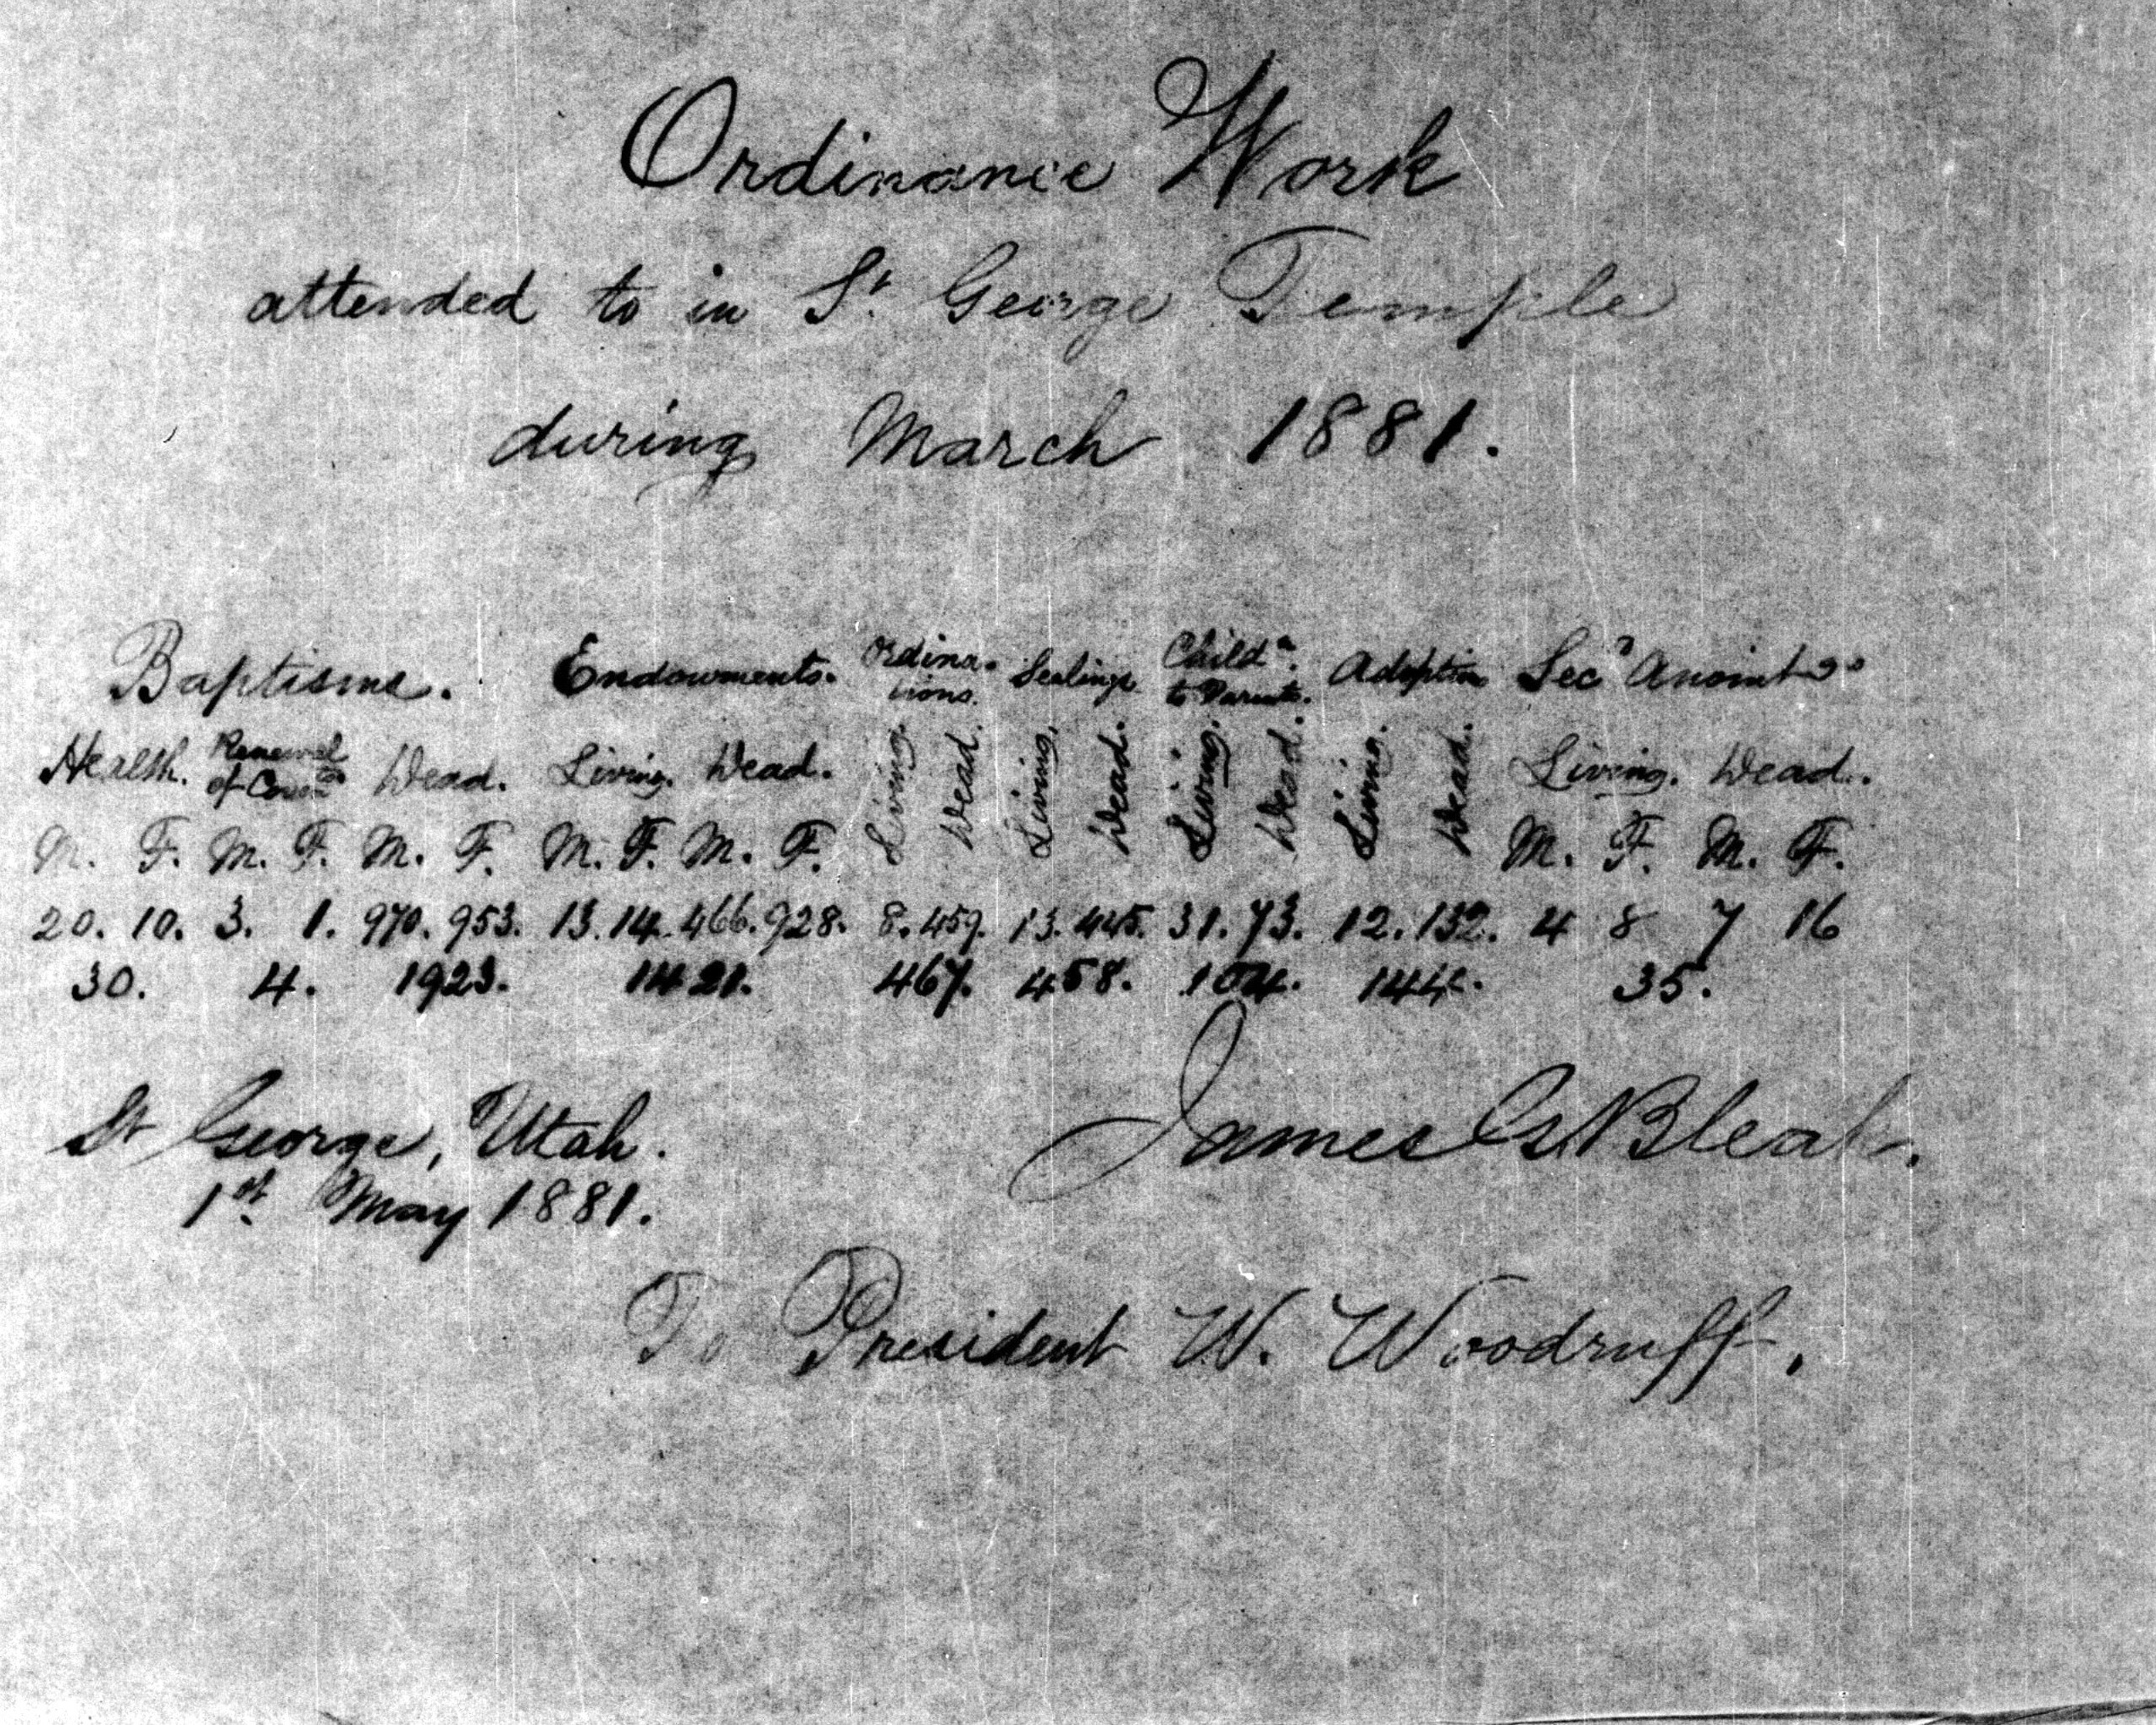 Ordinance Work
attended to in St. George Temple
during March 1881.
Baptisms. Endowments. Ordina- Sealings Child.n Adoption Sec.d Anoint.gs
tions. to Parents.
Health. Renewal Dead. Living. Dead. Living. Dead. Living. Dead. Living. Dead. Living. Dead. Living. Dead.
of Coven.ts
M. F. M. F. M. F. M. F. M. F. M. F. M. F.
20. 10. 3. 1. 970. 953. 13. 14. 466. 928. 8. 459. 13. 445. 31. 73. 12. 132. 4 8 7 16
30. 4. 1923. 1421. 467. 458. 104. 144. 35.
St George, Utah. James G Bleak.
1st. May 1881.
To President W. Woodruff.